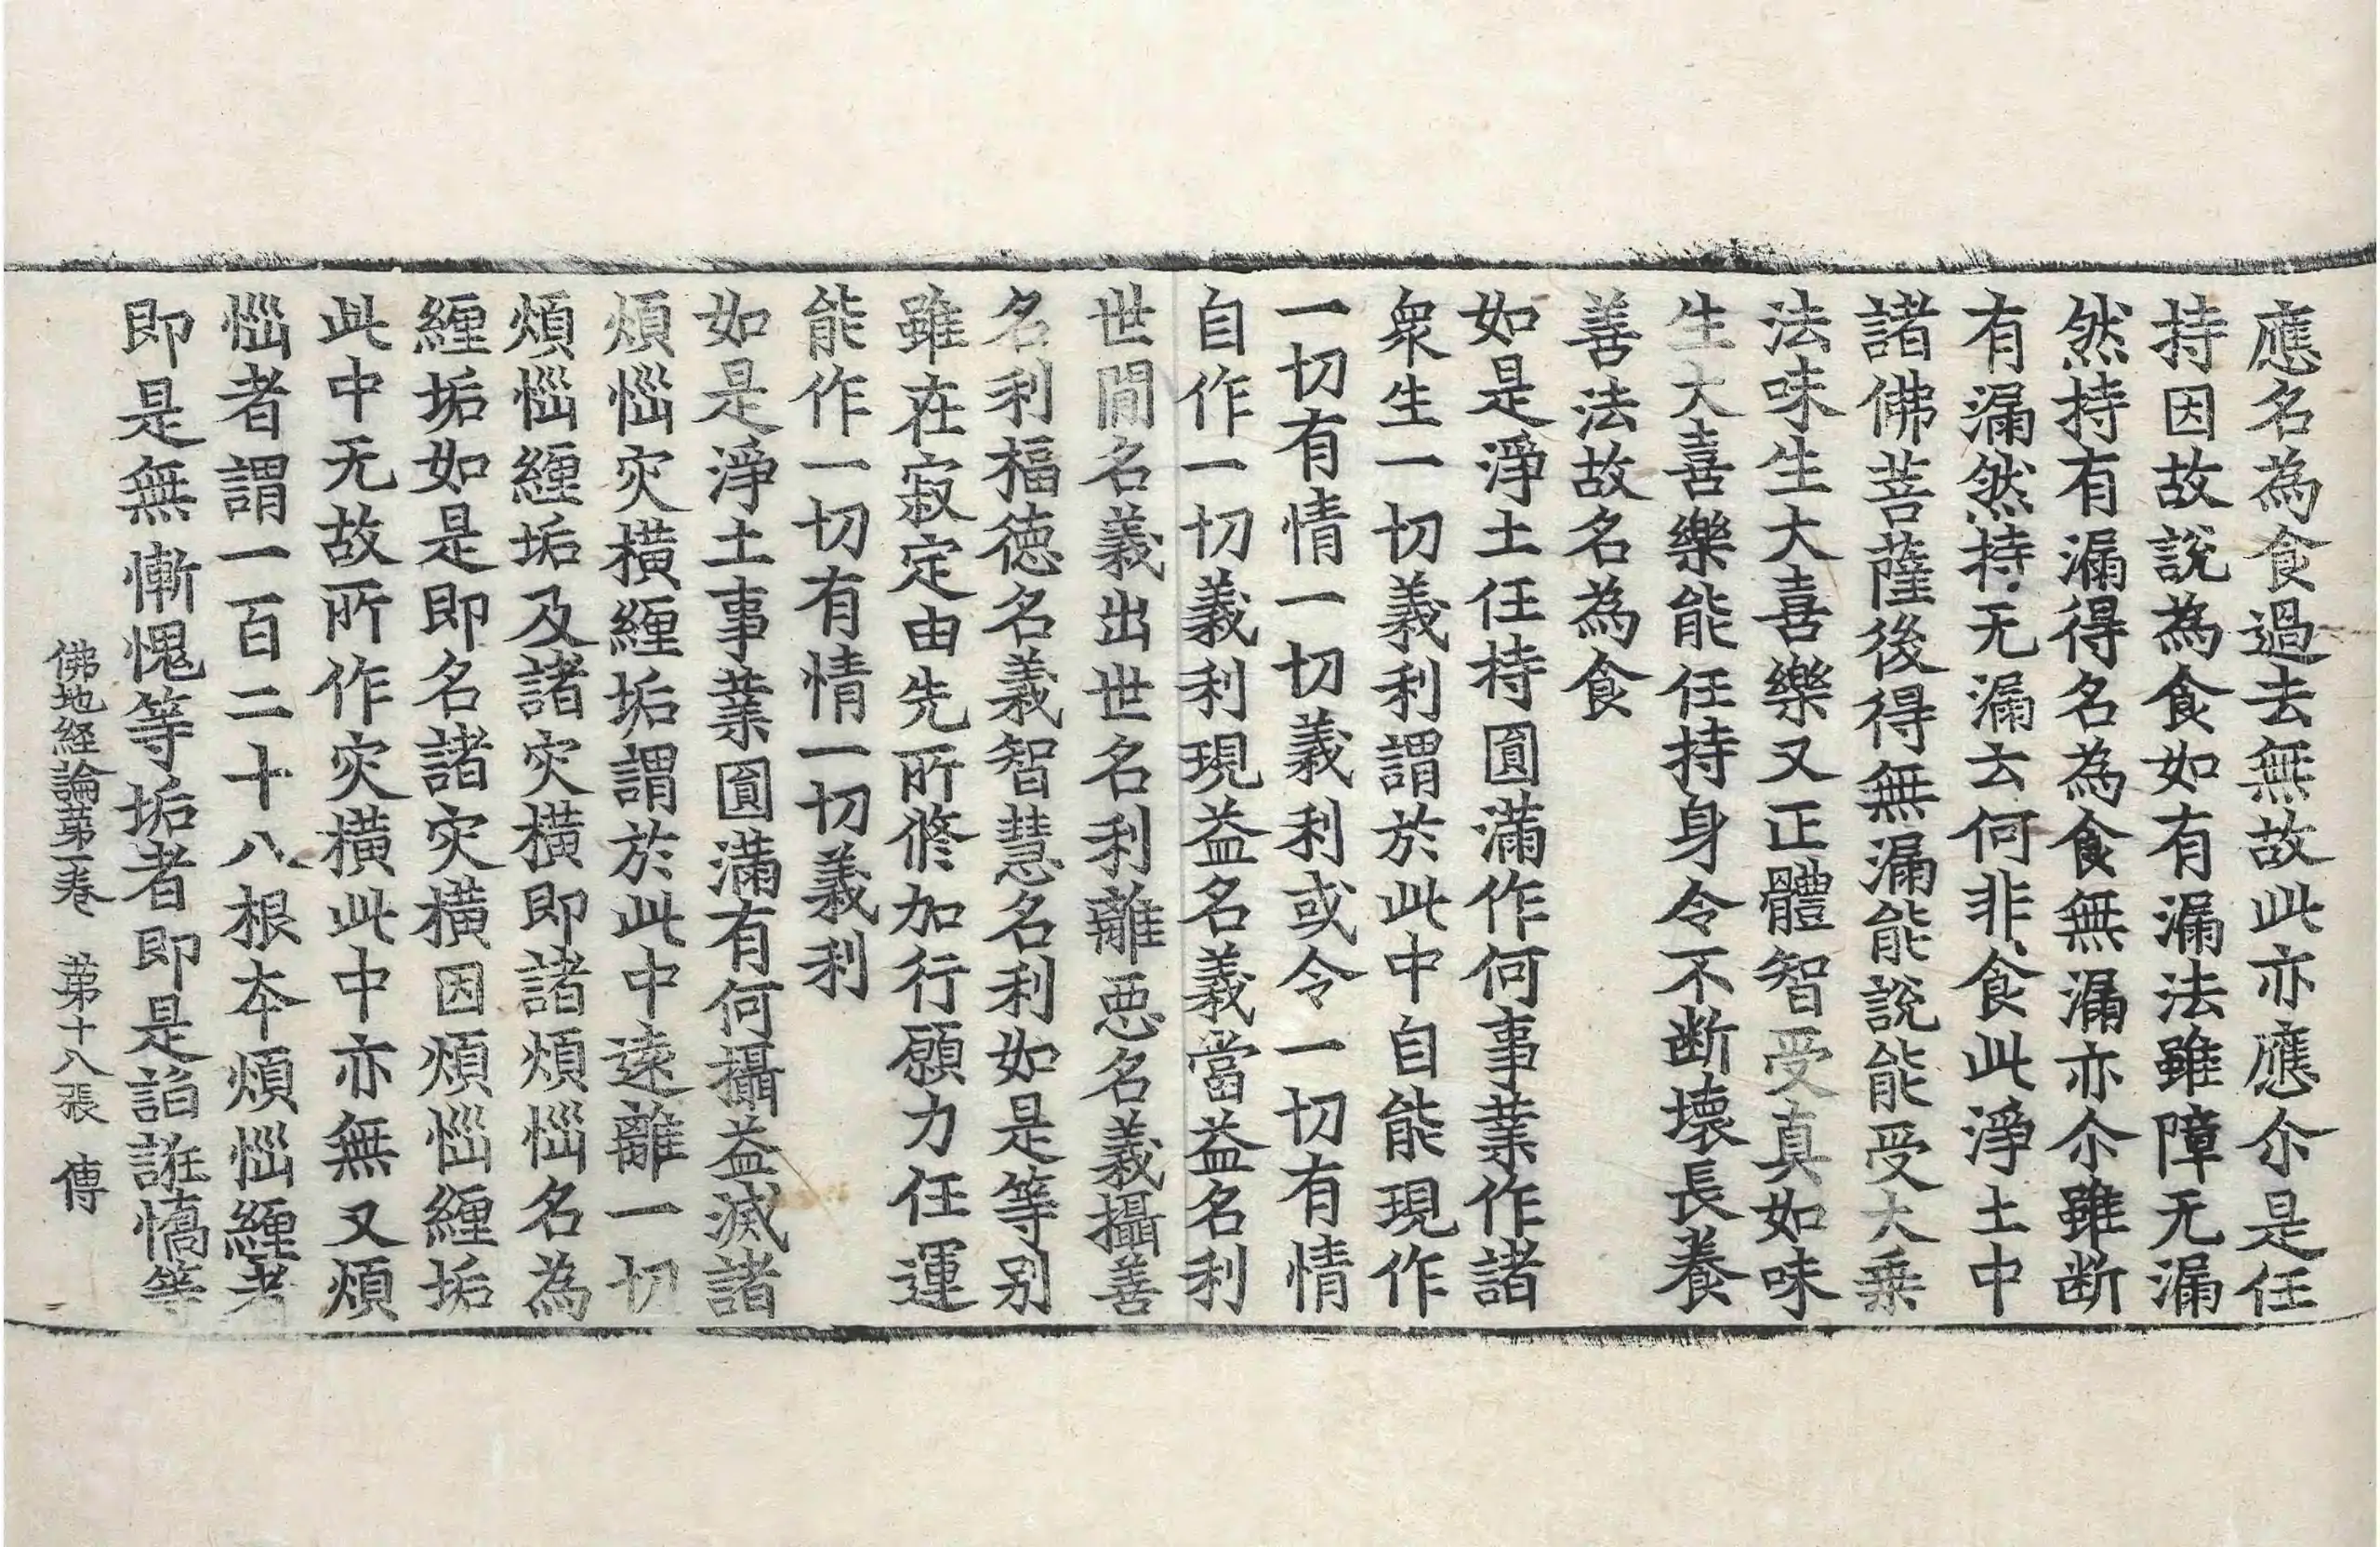 應名為食過去無故此亦應尒是任
持因故說為食如有漏法雖障无漏
然持有漏得名為食無漏亦尒雖断
有漏然持无漏云何非食此淨土中
諸佛菩薩後得無漏能說能受大乗
法味生大喜樂又正體智受真如味
生大喜樂能任持身令不断壞長養
善法故名為食
如是淨土任持圓滿作何事業作諸
衆生一切義利謂於此中自能現作
一切有情一切義利或令一切有情
自作一切義利現益名義當益名利
世間名義出世名利離惡名義攝善
名利福徳名義智慧名利如是等别
雖在寂定由先所修加行願力任運
能作一切有情一切義利
如是淨土事業圓滿有何攝益滅諸
煩惱灾横纏垢謂於此中遠離一切
煩惱纏垢及諸灾横即諸煩惱名為
纏垢如是即名諸灾横因煩惱纏垢
此中无故所作灾横此中亦無又煩
惱者謂一百二十八根夲煩惱纏者
即是無慚愧等垢者即是諂誑憍等
佛地經論第一卷 第十八張 傳